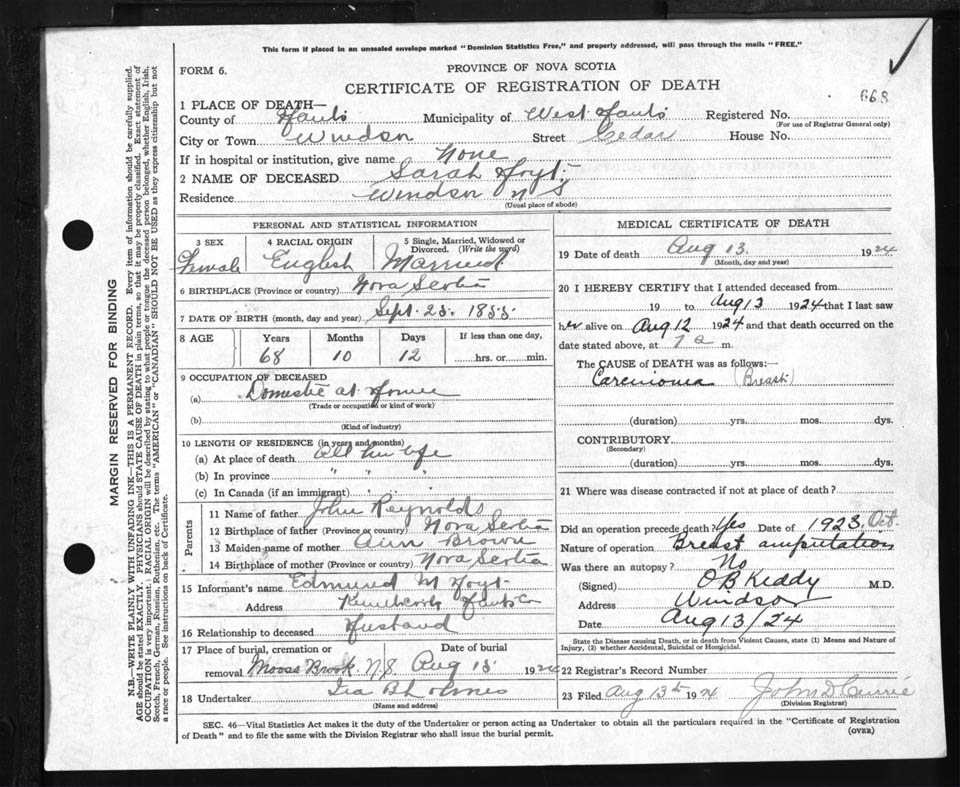 This form if placed in an unsealed envelope marked "Dominion Statistics Free," and properly addressed, will pass through the mails "FREE."
FORM 6.
PROVINCE OF NOVA SCOTIA
CERTIFICATE OF REGISTRATION OF DEATH
668
1 PLACE OF DEATH—
County of Hants Municipality of West Hants Registered No.
(For use of Registrar General only)
City or Town Windsor Street Cedar House No.
If in hospital or institution, give name None
2 NAME OF DECEASED Sarah Hoyt
Residence Windsor N S
(Usual place of abode)
PERSONAL AND STATISTICAL INFORMATION
3 SEX 4 RACIAL ORIGIN 5 Single, Married, Widowed or Divorced. (Write the word)
Female English Married
6 BIRTHPLACE (Province or country) Nova Scotia
7 DATE OF BIRTH (month, day and year) Sept. 23. 1855.
8 AGE Years Months Days If less than one day,
68 10 12 hrs. or min.
9 OCCUPATION OF DECEASED
(a) Domestic at Home
(Trade or occupation or kind of work)
(b)
(Kind of industry)
10 LENGTH OF RESIDENCE (in years and months)
(a) At place of death All her life
(b) In province " " "
(c) In Canada (if an immigrant) " " "
Parents
11 Name of father John Reynolds
12 Birthplace of father (Province or country) Nova Scotia
13 Maiden name of mother Ann Brown
14 Birthplace of mother (Province or country) Nova Scotia
15 Informant's name Edmund M Hoyt
Address Hants Co
16 Relationship to deceased Husband
17 Place of burial, cremation or Date of burial
removal Moose Brook. N.S Aug 15 1924
18 Undertaker B
(Name and address)
MEDICAL CERTIFICATE OF DEATH
19 Date of death Aug 13. 1924
(Month, day and year)
20 I HEREBY CERTIFY that I attended deceased from
19 to Aug 13 1924 that I last saw
her alive on Aug 12 1924 and that death occurred on the
date stated above, at 7 a m.
The CAUSE of DEATH was as follows:—
Carcinoma (Breast)
(duration) yrs. mos. dys.
CONTRIBUTORY
(Secondary)
(duration) yrs. mos. dys.
21 Where was disease contracted if not at place of death?
Did an operation precede death? Yes Date of 1923, Oct.
Nature of operation Breast amputation
Was there an autopsy? No
(Signed) O B Keddy M.D.
Address Windsor
Date Aug 13/24
State the Disease causing Death, or in death from Violent Causes, state (1) Means and Nature of Injury, (2) whether Accidental, Suicidal or Homicidal.
22 Registrar's Record Number
23 Filed Aug 13th 1924 John D Currie
(Division Registrar)
SEC. 46—Vital Statistics Act makes it the duty of the Undertaker or person acting as Undertaker to obtain all the particulars required in the "Certificate of Registration
of Death" and to file the same with the Division Registrar who shall issue the burial permit.
(OVER)
MARGIN RESERVED FOR BINDING
N.B.—WRITE PLAINLY WITH UNFADING INK—THIS IS A PERMANENT RECORD. Every item of information should be carefully supplied.
AGE should be stated EXACTLY. PHYSICIANS should STATE CAUSE OF DEATH in plain terms, so that it may be properly classified. Exact statement of
OCCUPATION is very important. RACIAL ORIGIN will be described by stating to what people or tongue the deceased person belonged, whether English, Irish,
Scotch, French, German, Russian, Ruthenian, etc. The terms "AMERICAN" or "CANADIAN" SHOULD NOT BE USED as they express citizenship but not
a race or people. See instructions on back of Certificate.